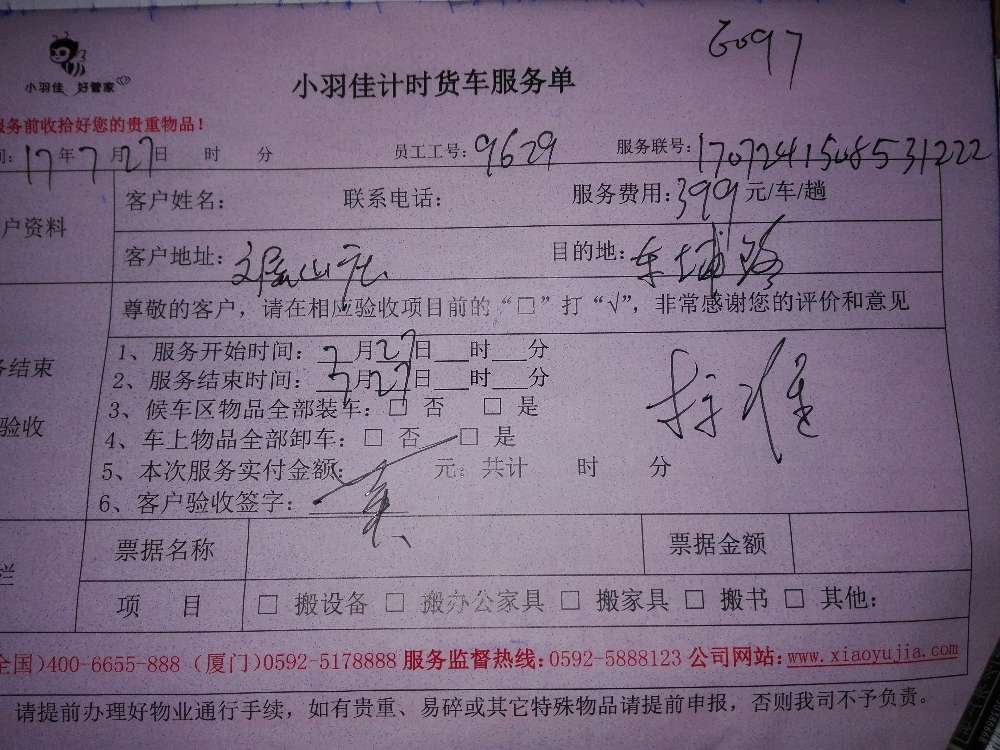 G097
小羽佳 好管家
小羽佳计时货车服务单
服务前收拾好您的贵重物品！
间：17年7月27日 时 分 员工工号：9629 服务联号：1707241508531222
户资料 客户姓名： 联系电话： 服务费用：399元/车/趟
客户地址： 山庄 目的地：车埔路
尊敬的客户，请在相应验收项目前的“□”打“√”，非常感谢您的评价和意见
务结束
验收
1、服务开始时间：7月27日___时___分
2、服务结束时间：7月27日___时___分
3、候车区物品全部装车：□ 否 □ 是
标准
4、车上物品全部卸车：□ 否 □ 是
5、本次服务实付金额： 元；共计 时 分
6、客户验收签字：
栏 票据名称 票据金额
项 目 □ 搬设备 □ 搬办公家具 □ 搬家具 □ 搬书 □ 其他：
全国)400-6655-888 (厦门)0592-5178888 服务监督热线：0592-5888123 公司网站：www.xiaoyujia.com
请提前办理好物业通行手续，如有贵重、易碎或其它特殊物品请提前申报，否则我司不予负责。